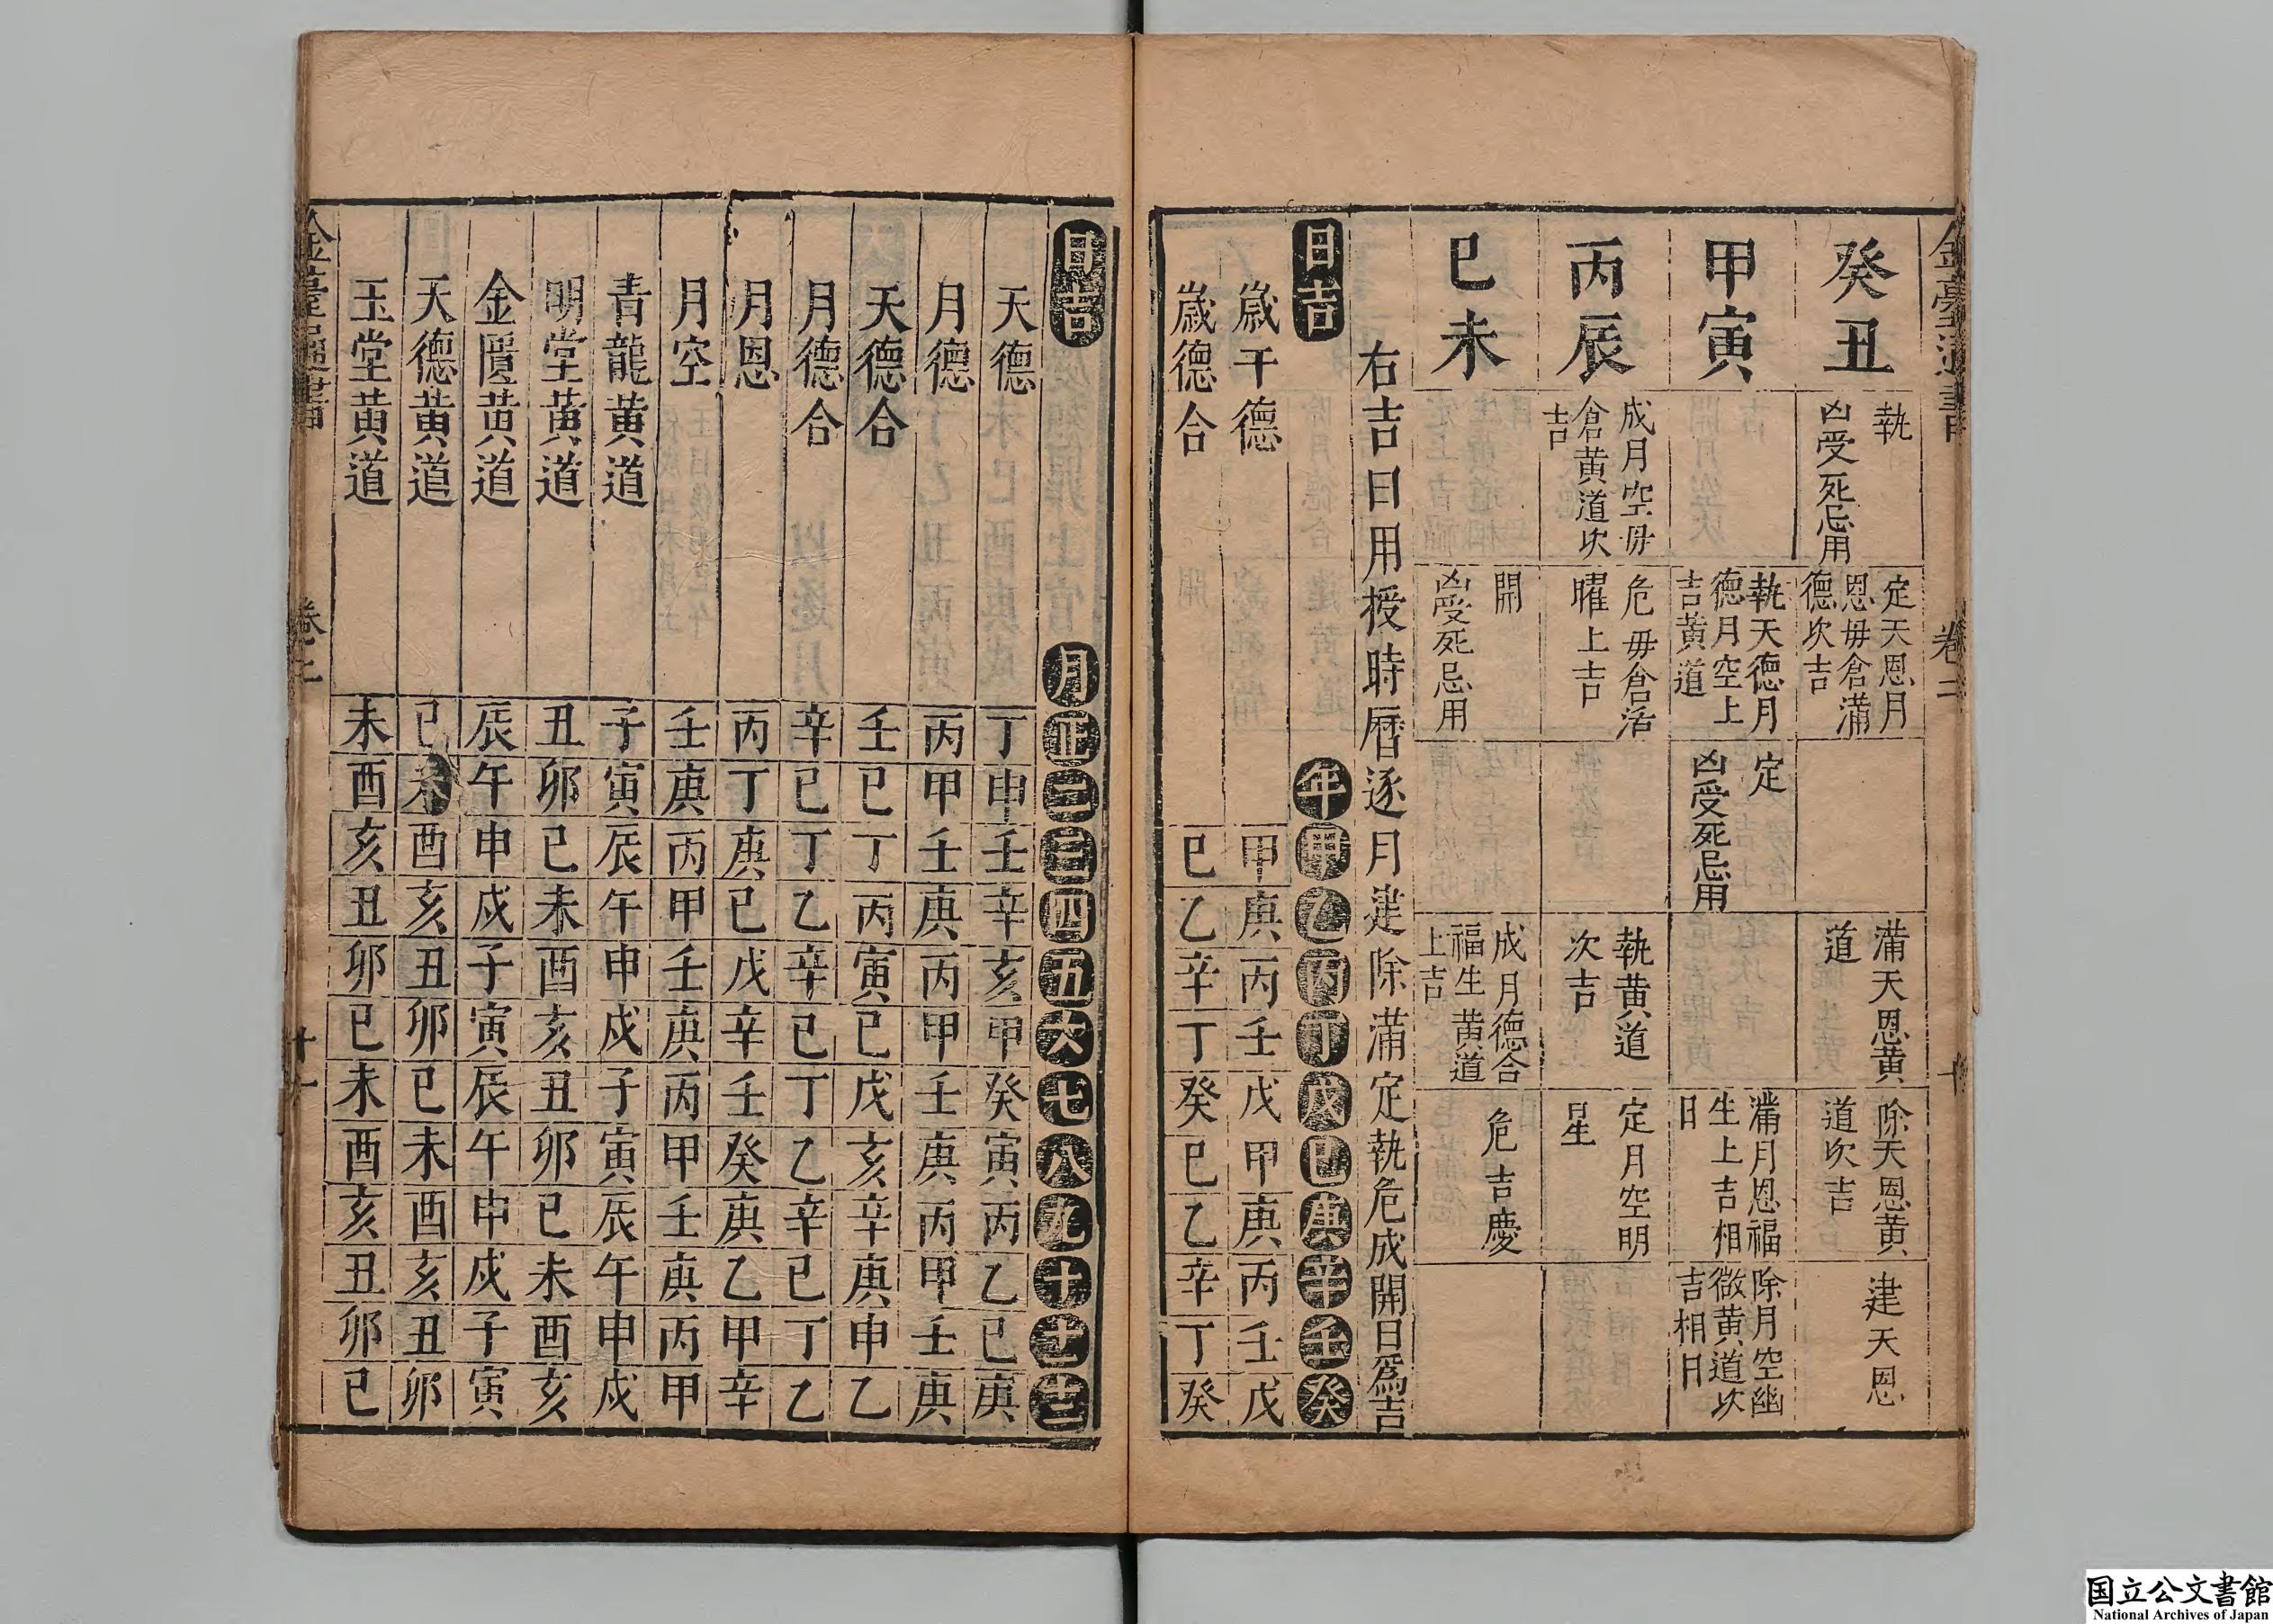 金臺通書
卷二
十
癸丑
執
凶受死忌用
定天恩月
恩毋倉滿
德次吉
滿天恩黄
道
除天恩黄
道次吉
建天恩
甲寅
執天德月
德月空上
吉黄道
定
凶受死忌用
滿月恩福
生上吉相
日
除月空幽
微黄道次
吉相日
丙辰
成月空毋
倉黄道次
吉
危毋倉活
曜上吉
執黄道
次吉
定月空明
星
巳未
開
凶受死忌用
成月德合
福生黄道
上吉
危吉慶
右吉日用授時曆逐月建除滿定執危成開日爲吉
日吉 年甲乙丙丁戊巳庚辛壬癸
歲干德 甲庚丙壬戊甲庚丙壬戊
歲德合 巳乙辛丁癸巳乙辛丁癸
日吉 月正二三四五六七八九十十一十二
天德 丁申壬辛亥甲癸寅丙乙巳庚
月德 丙甲壬庚丙甲壬庚丙甲壬庚
天德合 壬巳丁丙寅巳戊亥辛庚申乙
月德合 辛巳丁乙辛巳丁乙辛巳丁乙
月恩 丙丁庚巳戊辛壬癸庚乙甲辛
月空 壬庚丙甲壬庚丙甲壬庚丙甲
青龍黄道 子寅辰午申戌子寅辰午申戌
明堂黄道 丑卯巳未酉亥丑卯巳未酉亥
金匱黄道 辰午申戌子寅辰午申戌子寅
天德黄道 巳未酉亥丑卯巳未酉亥丑卯
玉堂黄道 未酉亥丑卯巳未酉亥丑卯巳
金臺通書
卷二
十一
国立公文書館
National Archives of Japan